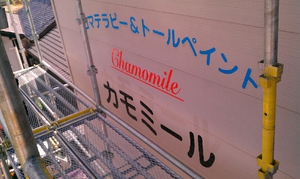 マテラピー&トールペイント
Chamomile
カモミール